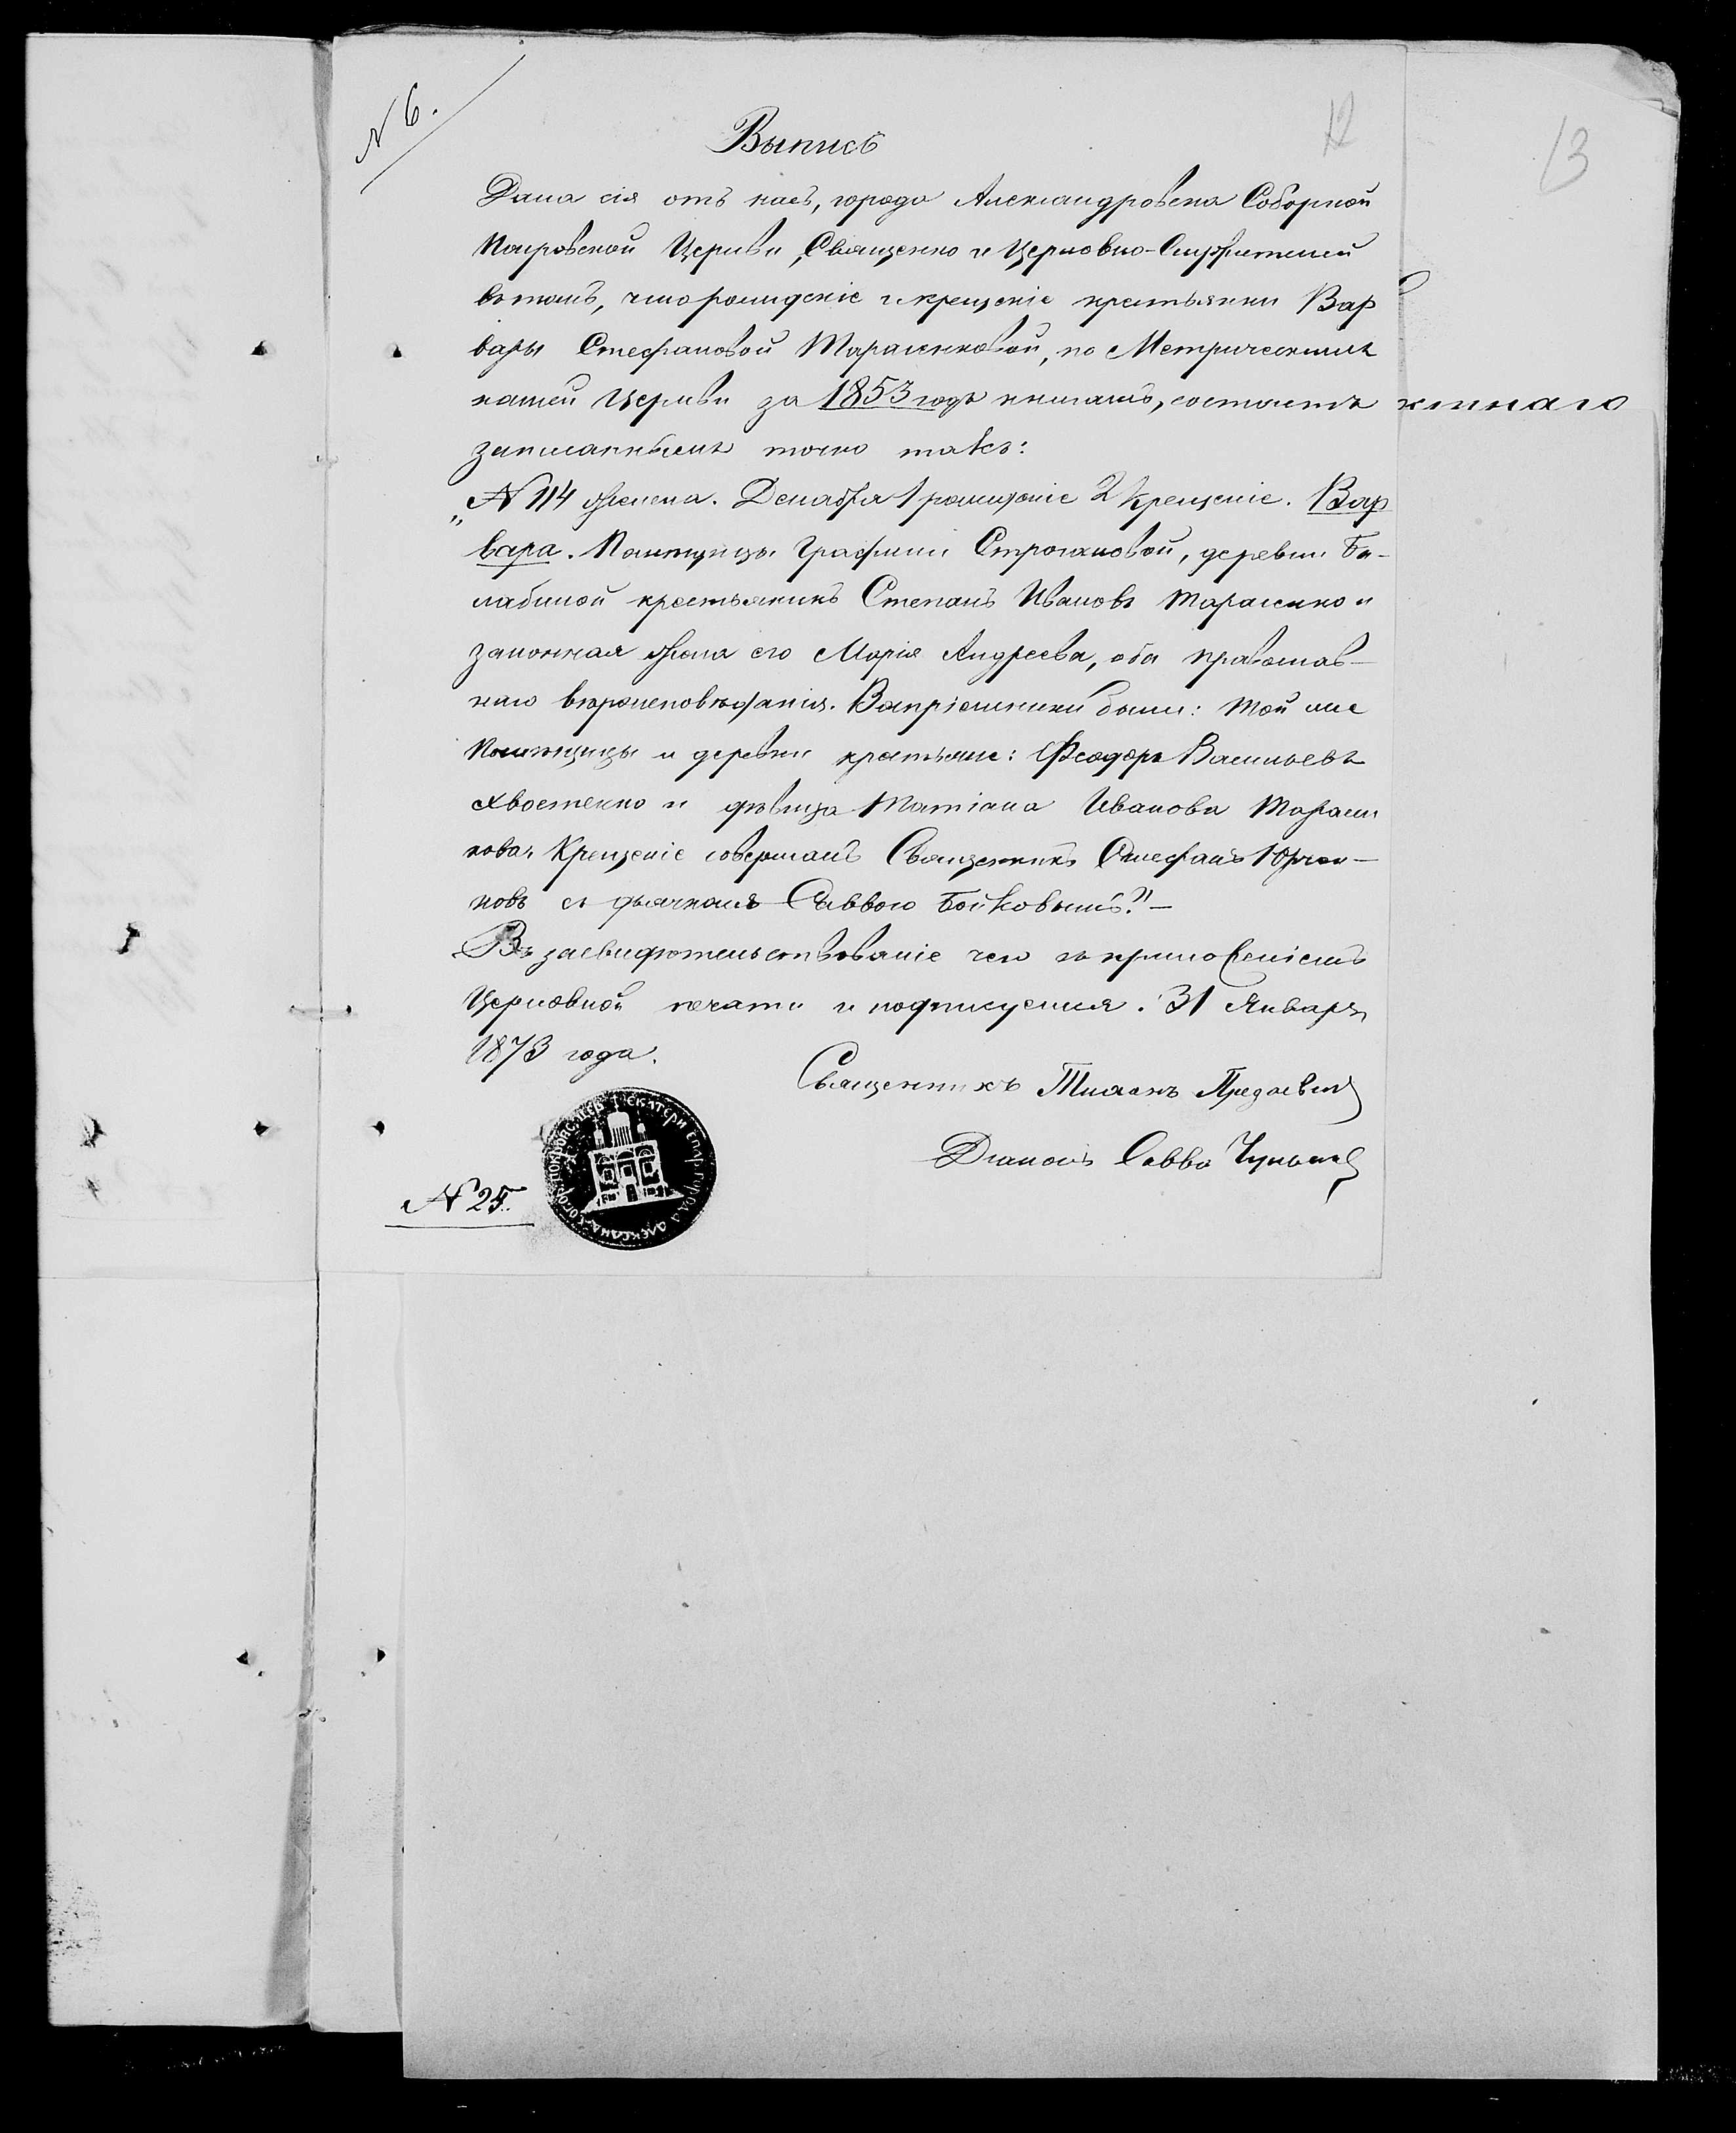 N 6.
12
13
Выпись
Дана сія отъ насъ, города Александровска Соборной
Покровской Церкви, Священно и Церковно-Служителей
въ томъ, что рожденіе и крещеніе крестьянки Вар
вары Стефановой Тарасенковой, по Метрическимъ
нашей Церкви за 1853 годъ книгамъ, состоитъ
записаннымъ точно такъ:
„N 114 женска. Декабря 1 рожденіе 2 крещеніе. Вар
вара. Помѣщицы Графини Строгановой, деревни Ба-
лабиной крестьянинъ Степанъ Ивановъ Тарасенко и
законная жена его Марія Андреева, оба православ-
наго вѣроисповѣданія. Воспріемники были: Той же
Помѣщицы и деревни крестьяне: Феодоръ Васильевъ
Хвостенко и дѣвица Татіана Иванова Тарасен
кова. Крещеніе совершалъ Священникъ Стефанъ
новъ съ дьячкомъ Саввою Бойковымъ." —
Въ засвидѣтельствованіе чего съ приложеніемъ
Церковной печати и подписуемся. 31 Января
1873 года.
Священникъ
Діаконъ Савва
N 25.